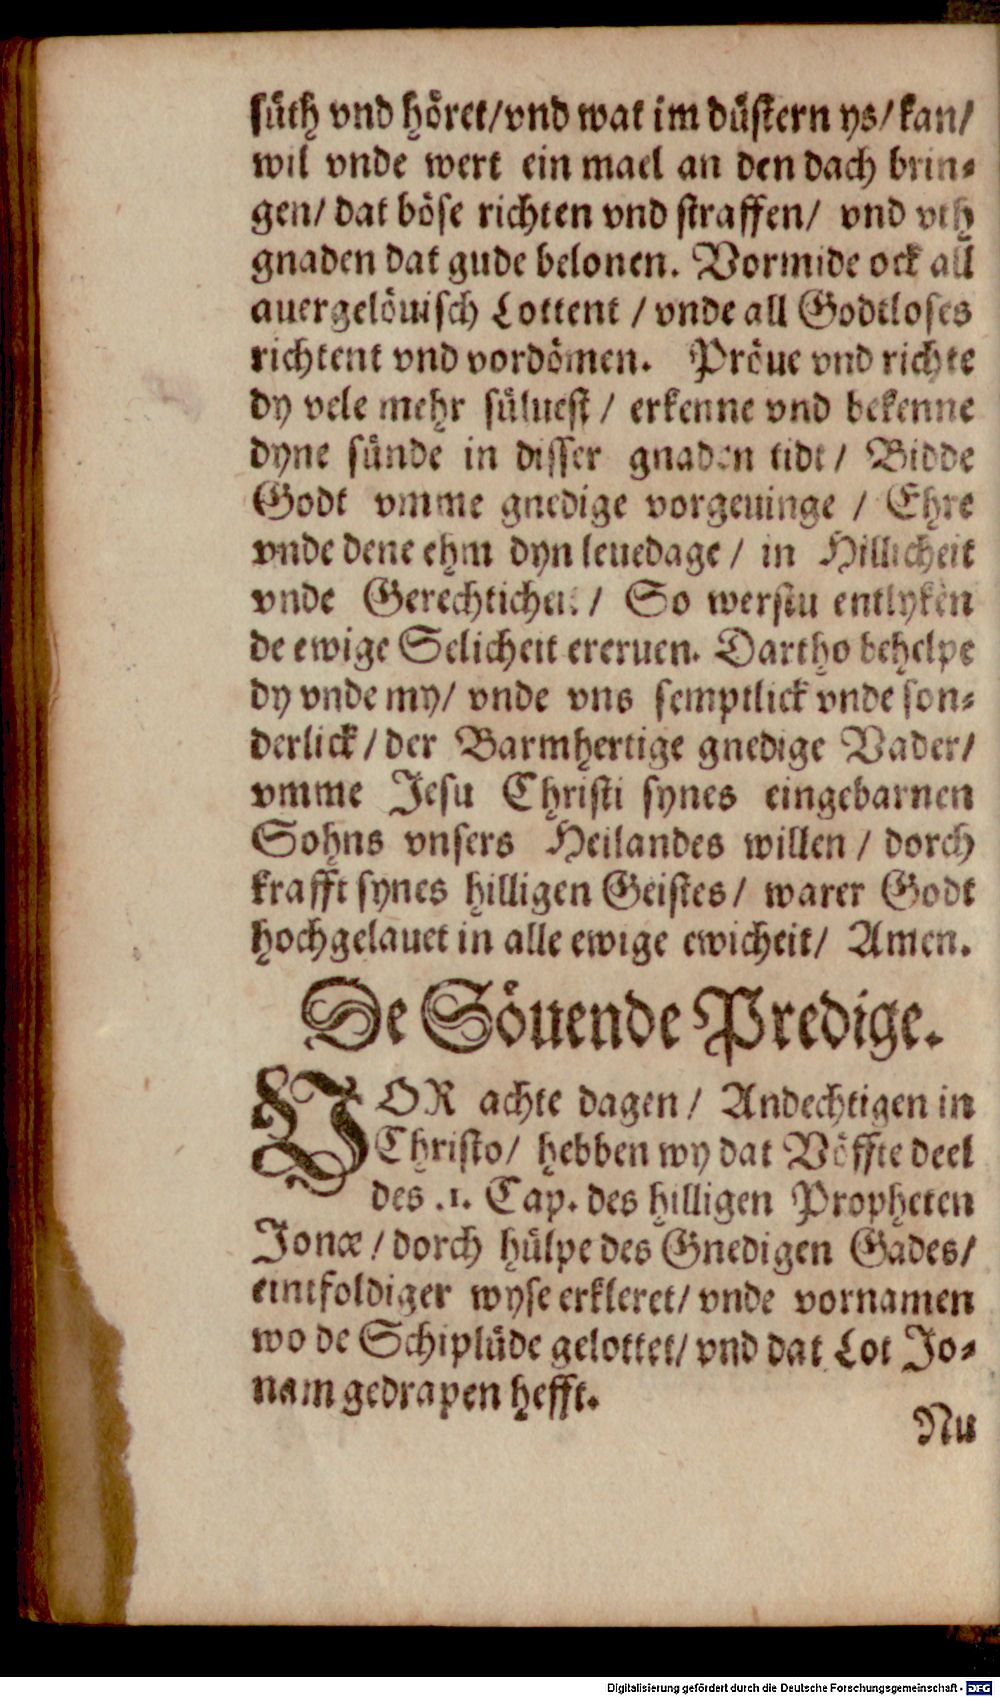 süth vnd höret/vnd wat im düstern ys/kan/
wil vnde wert ein mael an den dach brin-
gen/ dat böse richten vnd straffen/ vnd vth
gnaden dat gude belonen. Vormide ock all
auergelöuisch Lottent / vnde all Godtloses
richtent vnd vordömen. Pröue vnd richte
dy vele mehr süluest / erkenne vnd bekenne
dyne sünde in disser gnaden tidt / Bidde
Godt vmme gnedige vorgeuinge / Ehre
vnde dene ehm dyn leuedage / in Hillicheit
vnde Gerechticheit / So werstu entlyken
de ewige Selicheitereruen. Dartho behelpe
dy vnde my/ vnde vns semptlick vnde son-
derlick / der Barmhertige gnedige Vader/
vmme Jesu Christi synes eingebarnen
Sohns vnsers Heilandes willen / dorch
krafft synes hilligen Geistes/ warer Godt
hochgelauet in alle ewige ewicheit/ Amen.
De Söuende Predige.
VOR achte dagen / Andechtigen in
Christo/ hebben wy dat Vöffte deel
des .1. Cap. des hilligen Propheten
Jonæ / dorch hülpe des Gnedigen Gades/
eintfoldiger wyse erkleret/ vnde vornamen
wo de Schiplüde gelottet/ vnd dat Lot Jo-
nam gedrapen hefft.
Nu
Digitalisierung gefördert durch die Deutsche Forschungsgemeinschaft - DFG